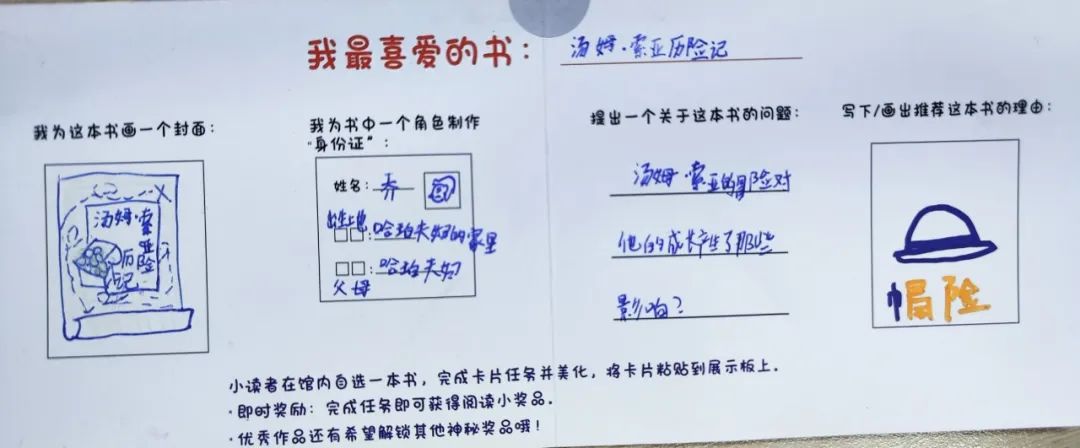 我最喜爱的书：汤姆·索亚历险记
我为这本书画一个封面：
汤姆·索亚历险记
我为书中一个角色制作
“身份证”：
姓名：乔
出生地
□□：哈珀夫妇的家里
□□：哈珀夫妇
父母
提出一个关于这本书的问题：
汤姆·索亚的冒险对
他的成长产生了那些
影响？
写下/画出推荐这本书的理由：
帽险
小读者在馆内自选一本书，完成卡片任务并美化，将卡片粘贴到展示板上。
·即时奖励：完成任务即可获得阅读小奖品。
·优秀作品还有希望解锁其他神秘奖品哦！